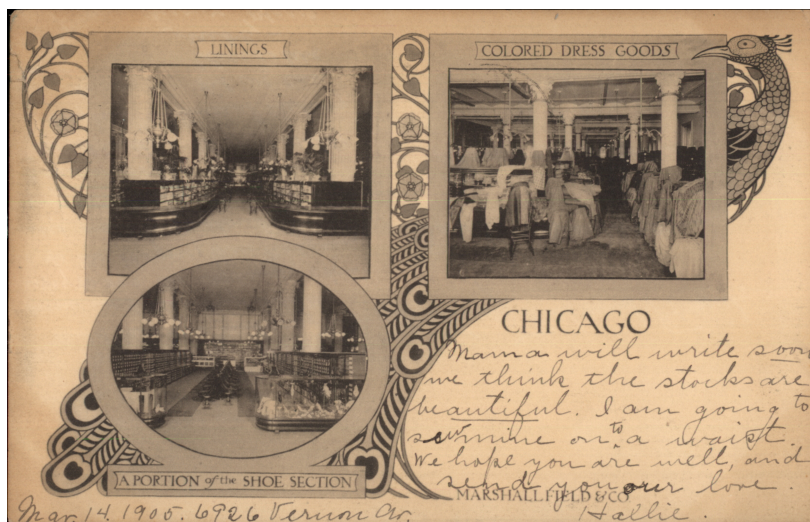 LININGS
COLORED DRESS GOODS
A PORTION of the SHOE SECTION
CHICAGO
Mama will write soon
we think the stocks are
beautiful. I am going to
sew mine on to a waist.
We hope you are well, and
send you our love.
MARSHALL FIELD & CO
Hallie.
Mar. 14. 1905. 6926 Vernon Av.